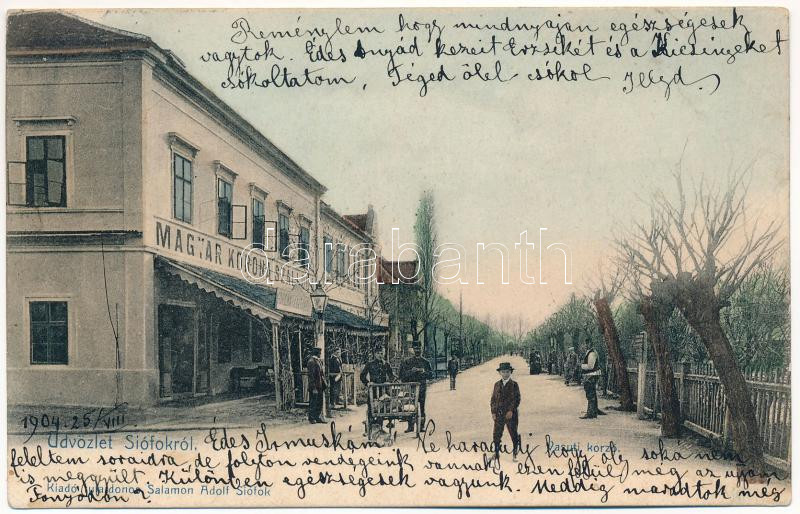 Reménylem hogy mindnyájan egészségesek
vagytok. Édes Anyád kezeit Erzsikét és a Kicsinyeket
csókoltatom, Téged ölel csókol
MAGYAR KORONA
darabanth
1904. 25/VIII
Üdvözlet Siófokról.
Vasuti korzó.
Édes Irmuskám, Ne haragudj hogy oly soká nem
feleltem soraidra, de folyton vendégeink vannak, ezen felül még az ujjam
is meggyült. Különben egészségesek vagyunk. Meddig maradtok még
Fonyódon?
Kiadó tulajdonos Salamon Adolf Siófok